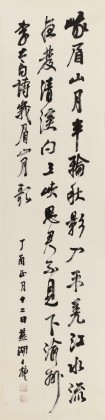 峨眉山月半輪秋影入平羌江水流
夜發清溪向三峽思君不見下渝州
李太白詩峨眉山月歌
丁酉正月十二日